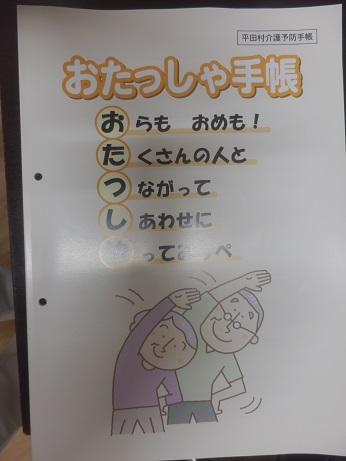 平田村介護予防手帳
おたっしゃ手帳
おらも おめも!
たくさんの人と
つながって
しあわせに
って